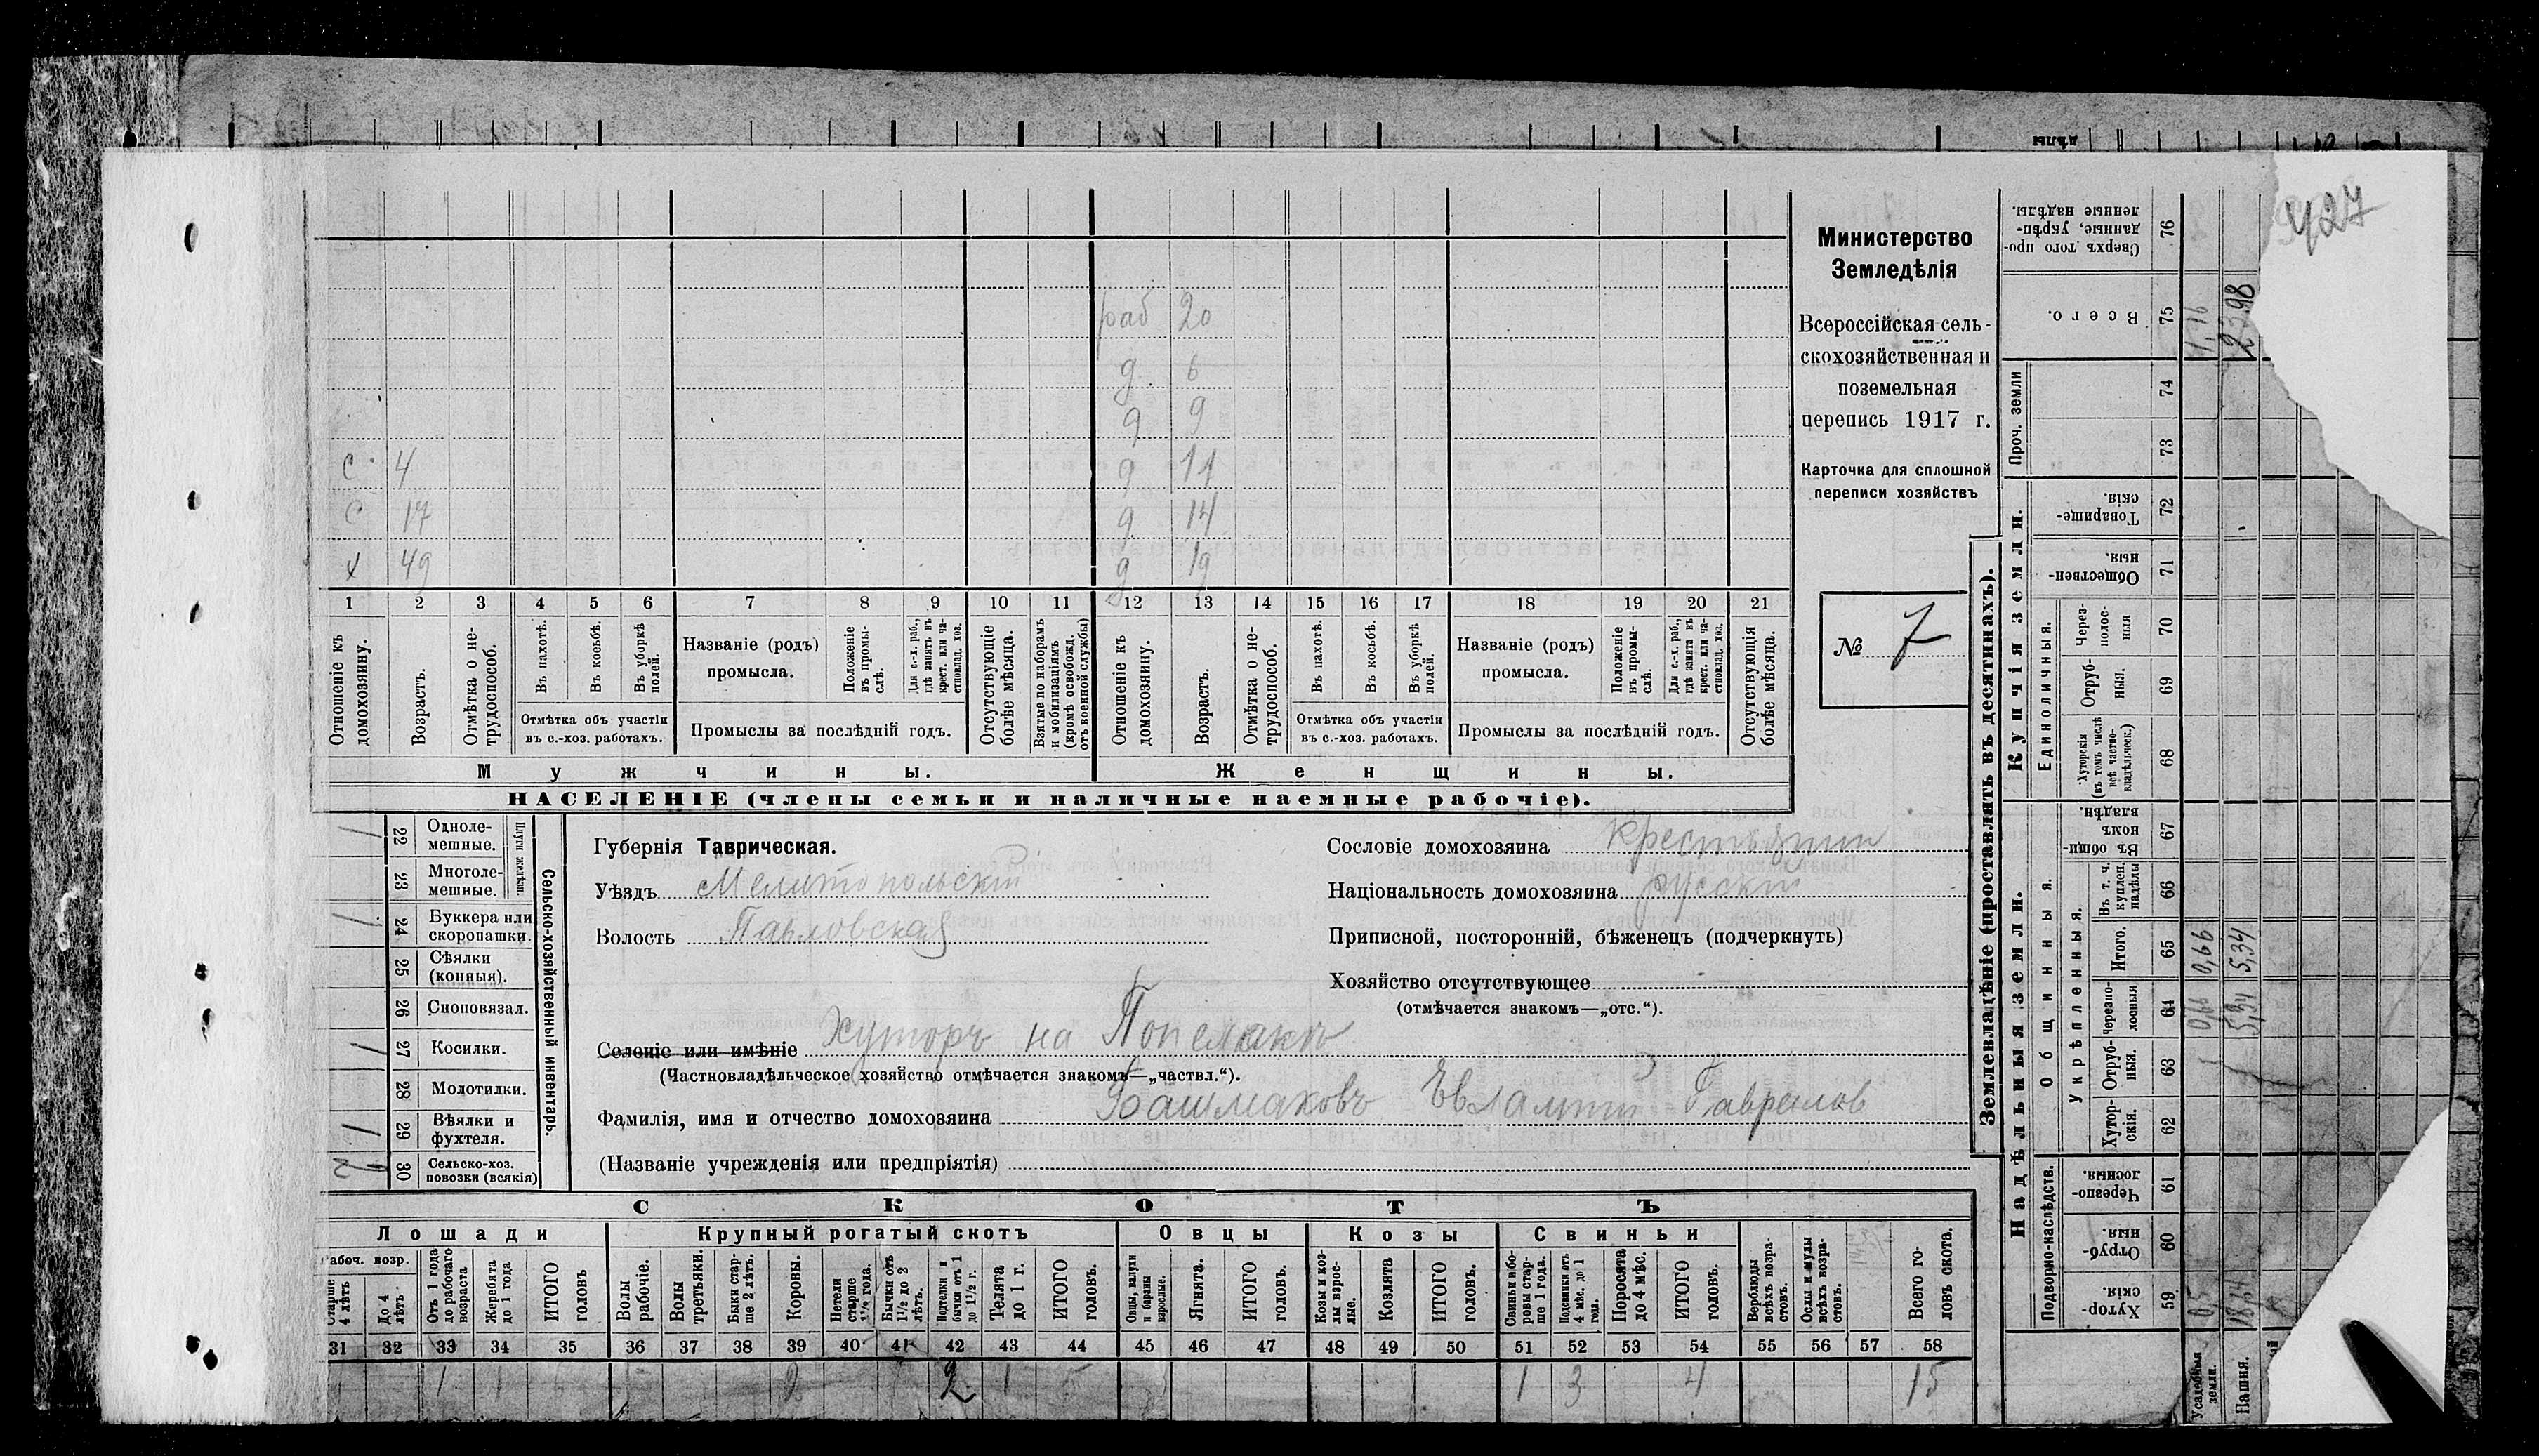 427
Министерство
Земледѣлія
Всероссійская сель-
скохозяйственная и
поземельная
перепись 1917 г.
Карточка для сплошной
переписи хозяйствъ
№ 7
раб 20
д 6
д 9
с 4 д 11
с 17 д 14
х 49 д 19
1 2 3 4 5 6 7 8 9 10 11 12 13 14 15 16 17 18 19 20 21
Отношеніе къ домохозяину.
Возрастъ.
Отмѣтка о не-трудоспособ.
Въ пахотѣ.
Въ косьбѣ.
Въ уборкѣ полей.
Отмѣтка объ участіи
въ с.-хоз. работахъ.
Названіе (родъ)
промысла.
Положеніе въ промы-слѣ.
Для с.-х. раб., гдѣ занятъ въ крест. или ча-стновлад. хоз.
Промыслы за послѣдній годъ.
Отсутствующіе болѣе мѣсяца.
Взятые по наборамъ и мобилизаціямъ (кромѣ освобожд. отъ военной службы)
Отношеніе къ домохозяину.
Возрастъ.
Отмѣтка о не-трудоспособ.
Въ пахотѣ.
Въ косьбѣ.
Въ уборкѣ полей.
Отмѣтка объ участіи
въ с.-хоз. работахъ.
Названіе (родъ)
промысла.
Положеніе въ промы-слѣ.
Для с.-х. раб., гдѣ занята въ крест. или ча-стновлад. хоз.
Промыслы за послѣдній годъ.
Отсутствующія болѣе мѣсяца.
Мужчины. Женщины.
НАСЕЛЕНІЕ (члены семьи и наличные наемные рабочіе).
Сельско-хозяйственный инвентарь.
Плуги желѣзн.
1 22 Одноле-мешные.
23 Многоле-мешные.
1 24 Буккера или скоропашки.
25 Сѣялки (конныя).
26 Сноповязал.
1 27 Косилки.
28 Молотилки.
1 29 Вѣялки и фухтеля.
2 30 Сельско-хоз. повозки (всякія)
Губернія Таврическая.
Уѣздъ Мелитопольскій
Волость Павловская
Селеніе или имѣніе Хуторъ на
(Частновладѣльческое хозяйство отмѣчается знакомъ—„частвл.“).
Фамилія, имя и отчество домохозяина Башмаковъ Евлампій Гаврилов
(Названіе учрежденія или предпріятія)
Сословіе домохозяина крестьянин
Національность домохозяина русскій
Приписной, посторонній, бѣженецъ (подчеркнуть)
Хозяйство отсутствующее
(отмѣчается знакомъ—„отс.“).
СКОТЪ
Лошади Крупный рогатый скотъ Овцы Козы Свиньи
Рабоч. возр.
Старше 4 лѣтъ
До 4 лѣтъ.
Отъ 1 года до рабочаго возраста
Жеребята до 1 года
ИТОГО головъ
Волы рабочіе.
Волы третьяки.
Быки стар-ше 2 лѣтъ.
Коровы.
Нетели старше 1½ года.
Бычки отъ 1½ до 2 лѣтъ.
Подтелки и бычки отъ 1 до 1½ г.
Телята до 1 г.
ИТОГО головъ.
Овцы, валухи и бараны взрослые.
Ягнята.
ИТОГО головъ.
Козы и коз-лы взрос-лые.
Козлята
ИТОГО головъ.
Свиньи и бо-ровы стар-ше 1 года.
Подсвинки отъ 4 мѣс. до 1 года.
Поросята до 4 мѣс.
ИТОГО головъ.
Верблюды всѣхъ возра-стовъ.
Ослы и мулы всѣхъ возра-стовъ.
Всего го-ловъ скота.
31 32 33 34 35 36 37 38 39 40 41 42 43 44 45 46 47 48 49 50 51 52 53 54 55 56 57 58
1 1 2 2 1 5 1 3 4 15
Землевладѣніе (проставлять въ десятинахъ).
Надѣльныя земли. Купчія земли.
Подворно-наслѣдств.
Общинныя.
Укрѣпленныя.
Единоличныя.
Проч. земли
59 Хутор-скія.
60 Отруб-ныя.
61 Черезпо-лосныя
62 Хутор-скія.
63 Отруб-ныя.
64 Черезпо-лосныя
65 Итого.
66 Въ т. ч. куплен. надѣлы
67 Въ общин-номъ владѣн.
68 Хуторскія (въ томъ числѣ всѣ частно-владѣльческ.)
69 Отруб-ныя.
70 Через-полос-ныя
71 Обществен-ныя.
72 Товарище-скія.
73
74
75 Всего.
76 Сверхъ того про-данные, укрѣп-ленные надѣлы.
Усадебныя земли. 0,5 0,66 0,66 1,16
Пашня. 18,34 5,34 5,34 23,98